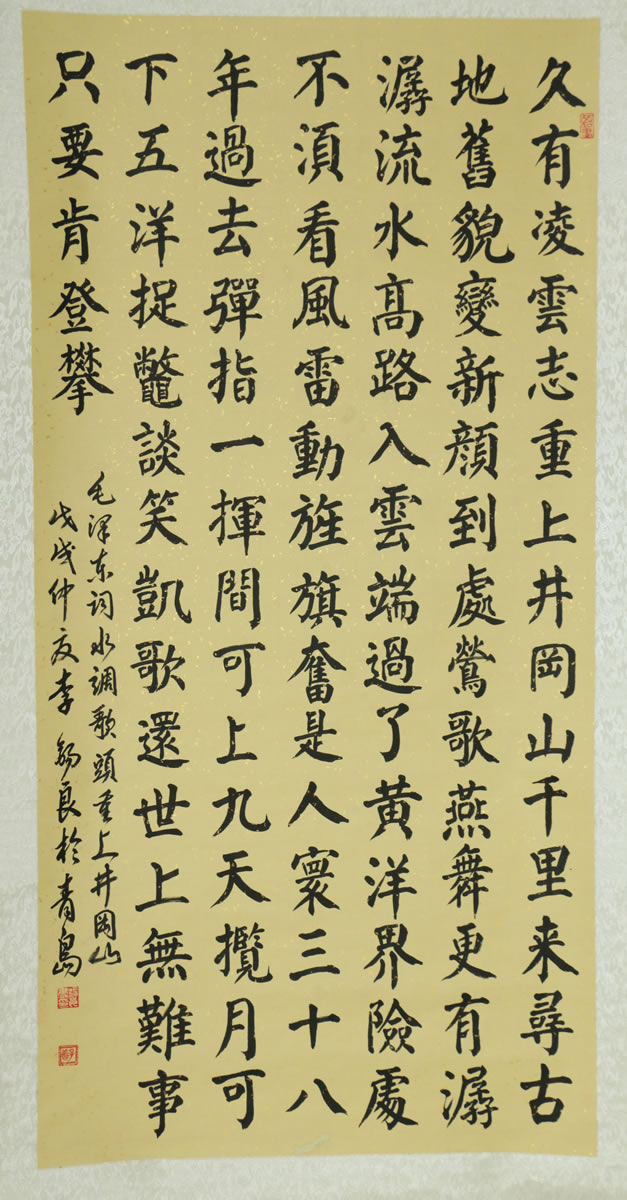 久有凌雲志重上井岡山千里来尋古
地舊貌變新顔到處鶯歌燕舞更有潺
潺流水髙路入雲端過了黄洋界險處
不湏看風雷動旌旗奮是人寰三十八
年過去彈指一揮間可上九天攬月可
下五洋捉鼈談笑凱歌還世上無難事
只要肯登攀
毛澤东词水調歌頭重上井岡山
戊戌仲夏李良於青島